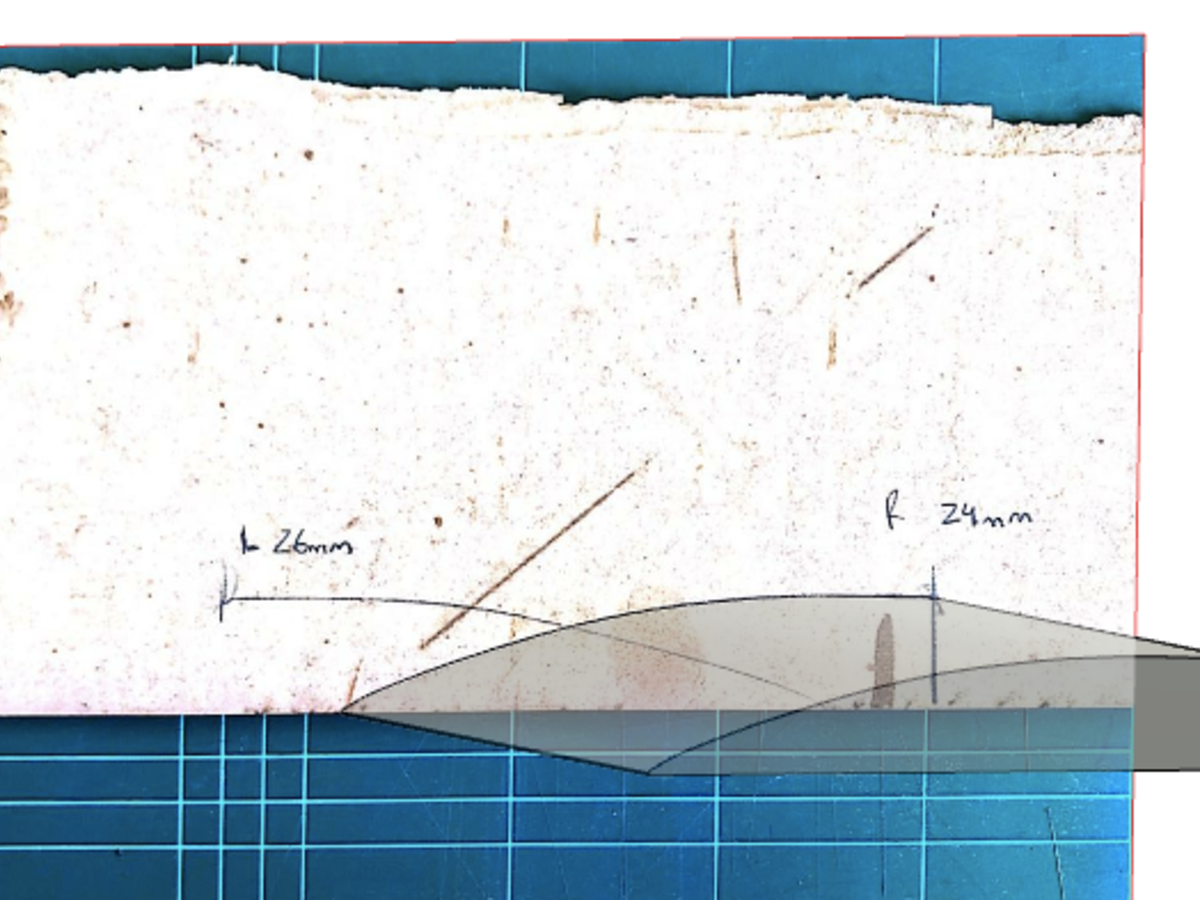 L 26mm
R 24mm